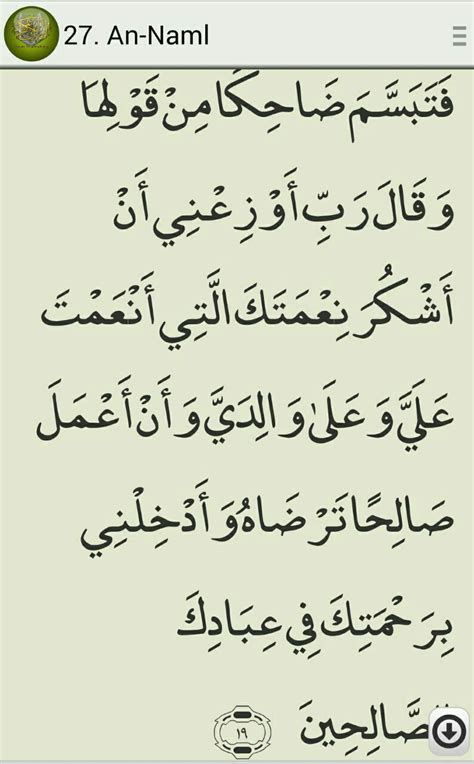 27. An-Naml
فَتَبَسَّمَ ضَاحِكًا مِنْ قَوْلِهَا
وَقَالَ رَبِّ أَوْزِعْنِي أَنْ
أَشْكُرَ نِعْمَتَكَ الَّتِي أَنْعَمْتَ
عَلَيَّ وَعَلَىٰ وَالِدَيَّ وَأَنْ أَعْمَلَ
صَالِحًا تَرْضَاهُ وَأَدْخِلْنِي
بِرَحْمَتِكَ فِي عِبَادِكَ
الصَّالِحِينَ ١٩